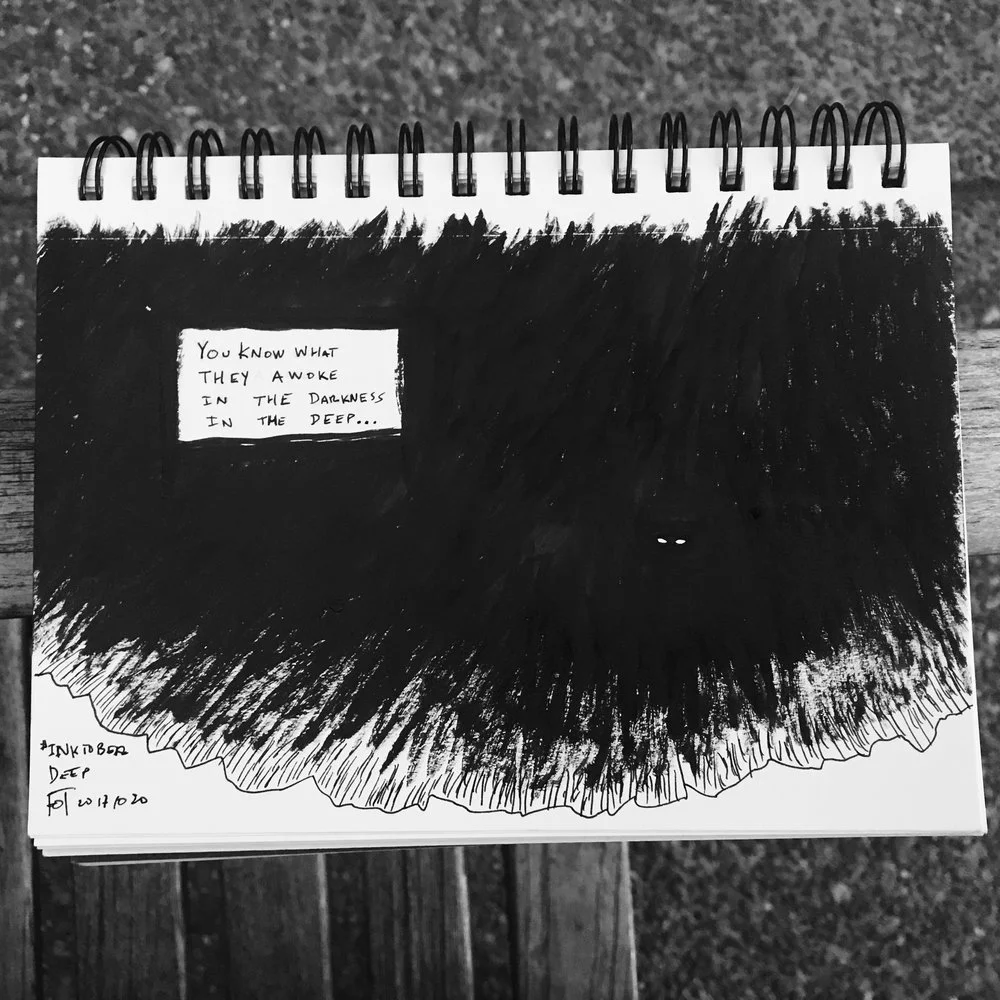 YOU KNOW WHAT
THEY AWOKE
IN THE DARKNESS
IN THE DEEP...
#INKTOBER
DEEP
2017/10/20